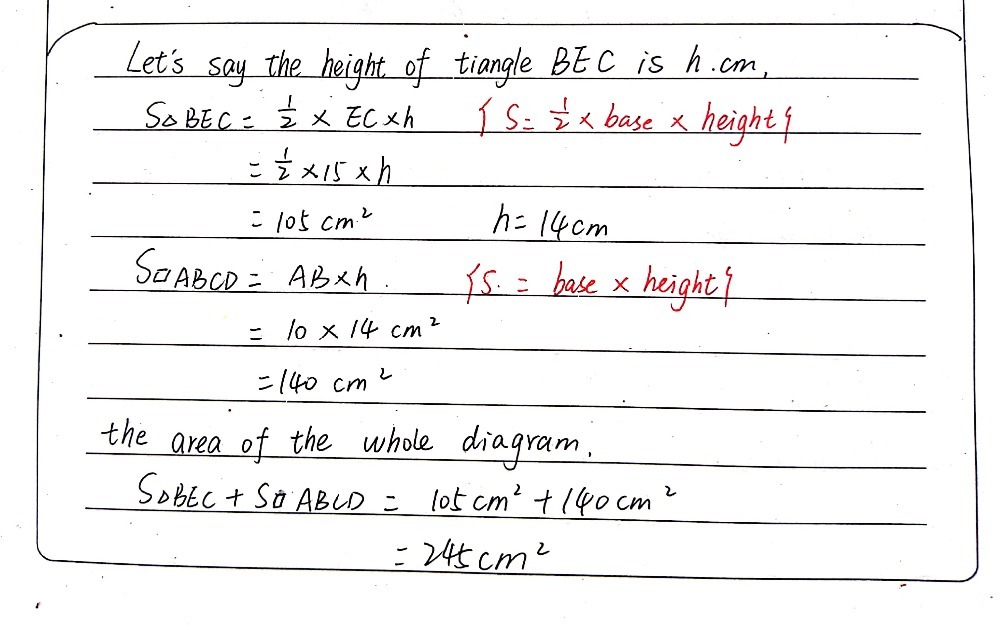 Let's say the height of tiangle BEC is h.cm,
S▵BEC = 1/2 × EC×h {S= 1/2 × base × height}
= 1/2 ×15 ×h
= 105 cm² h= 14cm
S▱ABCD = AB×h. {S. = base × height}
= 10 × 14 cm²
=140 cm²
the area of the whole diagram.
S▵BEC + S▱ABCD = 105cm² +140cm²
= 245cm²